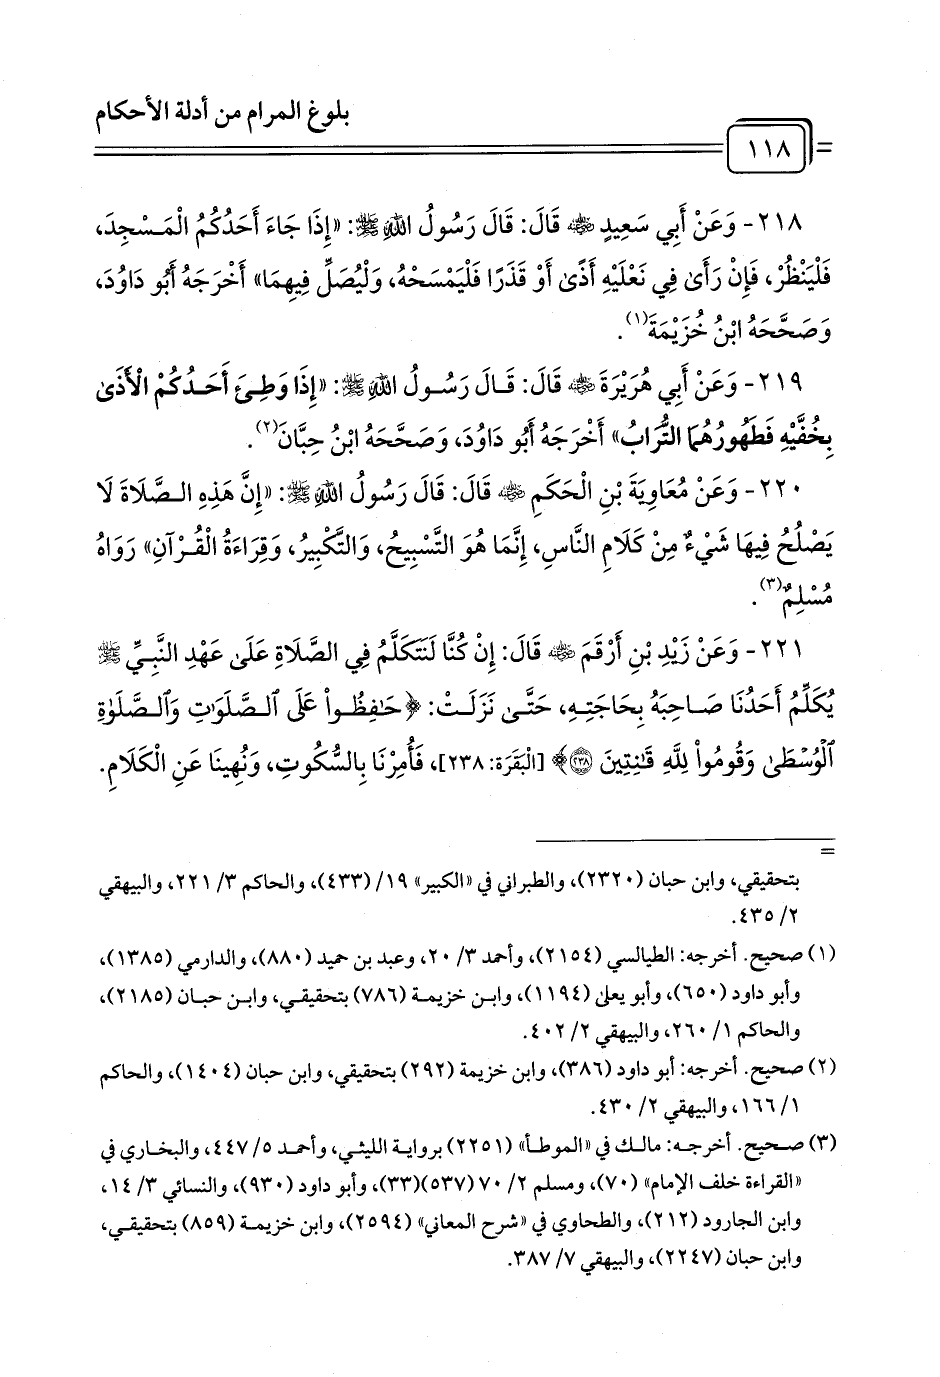 بلوغ المرام من أدلة الأحكام
= ١١٨
٢١٨- وَعَنْ أَبِي سَعِيدٍ ﵁ قَالَ: قَالَ رَسُولُ اللهِ ﷺ: «إِذَا جَاءَ أَحَدُكُمُ الْمَسْجِدَ،
فَلْيَنْظُرْ، فَإِنْ رَأَىٰ فِي نَعْلَيْهِ أَذًىٰ أَوْ قَذَرًا فَلْيَمْسَحْهُ، وَلْيُصَلِّ فِيهِمَا» أَخْرَجَهُ أَبُو دَاوُدَ،
وَصَحَّحَهُ ابْنُ خُزَيْمَةَ(١).
٢١٩- وَعَنْ أَبِي هُرَيْرَةَ ﵁ قَالَ: قَالَ رَسُولُ اللهِ ﷺ: «إِذَا وَطِئَ أَحَدُكُمْ الْأَذَىٰ
بِخُفَّيْهِ فَطَهُورُهُمَا التُّرَابُ» أَخْرَجَهُ أَبُو دَاوُدَ، وَصَحَّحَهُ ابْنُ حِبَّانَ(٢).
٢٢٠- وَعَنْ مُعَاوِيَةَ بْنِ الْحَكَمِ ﵁ قَالَ: قَالَ رَسُولُ اللهِ ﷺ: «إِنَّ هَذِهِ الصَّلَاةَ لَا
يَصْلُحُ فِيهَا شَيْءٌ مِنْ كَلَامِ النَّاسِ، إِنَّمَا هُوَ التَّسْبِيحُ، وَالتَّكْبِيرُ، وَقِرَاءَةُ الْقُرْآنِ» رَوَاهُ
مُسْلِمٌ(٣).
٢٢١- وَعَنْ زَيْدِ بْنِ أَرْقَمَ ﵁ قَالَ: إِنْ كُنَّا لَنَتَكَلَّمُ فِي الصَّلَاةِ عَلَىٰ عَهْدِ النَّبِيِّ ﷺ
يُكَلِّمُ أَحَدُنَا صَاحِبَهُ بِحَاجَتِهِ، حَتَّىٰ نَزَلَتْ: ﴿حَٰفِظُوا۟ عَلَى ٱلصَّلَوَٰتِ وَٱلصَّلَوٰةِ
ٱلْوُسْطَىٰ وَقُومُوا۟ لِلَّهِ قَٰنِتِينَ ٢٣٨﴾ [الْبَقَرَة: ٢٣٨]، فَأُمِرْنَا بِالسُّكُوتِ، وَنُهِينَا عَنِ الْكَلَامِ.
=
بتحقيقي، وابن حبان (٢٣٢٠)، والطبراني في «الكبير» ١٩/ (٤٣٣)، والحاكم ٣/ ٢٢١، والبيهقي
٢/ ٤٣٥.
(١) صحيح. أخرجه: الطيالسي (٢١٥٤)، وأحمد ٣/ ٢٠، وعبد بن حميد (٨٨٠)، والدارمي (١٣٨٥)،
وأبو داود (٦٥٠)، وأبو يعلىٰ (١١٩٤)، وابن خزيمة (٧٨٦) بتحقيقي، وابن حبان (٢١٨٥)،
والحاكم ١/ ٢٦٠، والبيهقي ٢/ ٤٠٢.
(٢) صحيح. أخرجه: أبو داود (٣٨٦)، وابن خزيمة (٢٩٢) بتحقيقي، وابن حبان (١٤٠٤)، والحاكم
١/ ١٦٦، والبيهقي ٢/ ٤٣٠.
(٣) صحيح. أخرجه: مالك في «الموطأ» (٢٢٥١) برواية الليثي، وأحمد ٥/ ٤٤٧، والبخاري في
«القراءة خلف الإمام» (٧٠)، ومسلم ٢/ ٧٠ (٥٣٧)(٣٣)، وأبو داود (٩٣٠)، والنسائي ٣/ ١٤،
وابن الجارود (٢١٢)، والطحاوي في «شرح المعاني» (٢٥٩٤)، وابن خزيمة (٨٥٩) بتحقيقي،
وابن حبان (٢٢٤٧)، والبيهقي ٧/ ٣٨٧.